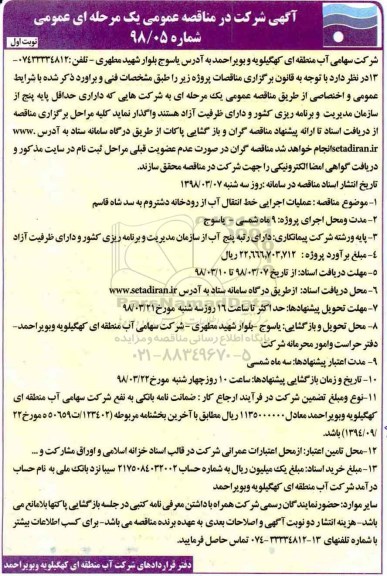 آگهی شرکت در مناقصه عمومی یک مرحله ای عمومی
شماره ۹۸/۰۵
نوبت اول
شرکت سهامی آب منطقه ای کهگیلویه و بویراحمد به آدرس یاسوج بلوار شهید مطهری - تلفن: ۰۷۴۳۳۳۳۴۸۱۲-
۱۳ در نظر دارد با توجه به قانون برگزاری مناقصات پروژه زیر را طبق مشخصات فنی و برآورد ذکر شده با شرایط
عمومی و اختصاصی از طریق مناقصه عمومی یک مرحله ای به شرکت هایی که دارای حداقل پایه پنج از
سازمان مدیریت و برنامه ریزی کشور و دارای ظرفیت آزاد هستند واگذار نماید کلیه مراحل برگزاری مناقصه
از دریافت اسناد تا ارائه پیشنهاد مناقصه گران و باز گشایی پاکات از طریق درگاه سامانه ستاد به آدرس www.
setadiran.ir انجام خواهد شد مناقصه گران در صورت عدم عضویت قبلی مراحل ثبت نام در سایت مذکور و
دریافت گواهی امضا الکترونیکی را جهت شرکت در مناقصه محقق سازند.
تاریخ انتشار اسناد مناقصه در سامانه :روز سه شنبه ۱۳۹۸/۰۳/۰۷
۱- موضوع مناقصه : عملیات اجرایی خط انتقال آب از رودخانه دشتروم به سد شاه قاسم
۲- مدت ومحل اجرای پروژه: ۹ ماه شمسی - یاسوج
۳- پایه ورشته شرکت پیمانکاری: دارای رتبه پنج آب از سازمان مدیریت و برنامه ریزی کشور و دارای ظرفیت آزاد
۴- مبلغ برآورد پروژه : ۲۲,۶۶۶,۷۰۳,۷۱۲ ریال
۵- مهلت دریافت اسناد: از تاریخ ۹۸/۰۳/۰۷ تا ۹۸/۰۳/۱۰
۶- محل دریافت اسناد: از طریق درگاه سامانه ستاد به آدرس www.setadiran.ir
۷- مهلت تحویل پیشنهادها: حداکثر تا ساعت ۱۶ روز سه شنبه مورخ ۹۸/۰۳/۲۱
۸- محل تحویل و بازگشایی: یاسوج -بلوار شهید مطهری - شرکت سهامی آب منطقه ای کهگیلویه وبویراحمد-
دفتر حراست وامور محرمانه شرکت
۹- مدت اعتبار پیشنهادها: سه ماه شمسی
۱۰- تاریخ و زمان بازگشایی پیشنهادها: ساعت ۱۰ روز چهار شنبه مورخ ۹۸/۰۳/۲۲
۱۱- نوع ومبلغ تضمین شرکت در فرآیند ارجاع کار : ضمانت نامه بانکی به نفع شرکت سهامی آب منطقه ای
کهگیلویه وبویراحمد معادل ۱۱۳۵۰۰۰۰۰۰ ریال مطابق با آخرین بخشنامه مربوطه (۱۲۳۴۰۲/ت ۵۰۶۵۹ه مورخ ۲۲
/۱۳۹۴/۰۹) باشد.
۱۲-محل تامین اعتبار: ازمحل اعتبارات عمرانی شرکت در قالب اسناد خزانه اسلامی و اوراق مشارکت و ...
۱۳- مبلغ خرید اسناد: مبلغ یک میلیون ریال به شماره حساب ۲۱۷۵۰۸۴۰۳۲۰۰۲ سیبا نزد بانک ملی به نام حساب
درآمد شرکت آب منطقه ای کهگیلویه وبویراحمد
سایر موارد: حضور نمایندگان رسمی شرکت همراه با داشتن معرفی نامه کتبی در جلسه بازگشایی پاکتها بلامانع می
باشد- هزینه انتشار دو نوبت آگهی و اصلاحات بعدی به عهده برنده مناقصه می باشد- برای کسب اطلاعات بیشتر
با شماره تلفنهای ۱۳-۰۷۴۳۳۳۳۴۸۱۲ تماس حاصل فرمایید.
دفتر قراردادهای شرکت آب منطقه ای کهگیلویه وبویراحمد
پایگاه اطلاع رسانی مناقصه و مزایده
۰۲۱-۸۸۳۴۹۶۷۰-۵